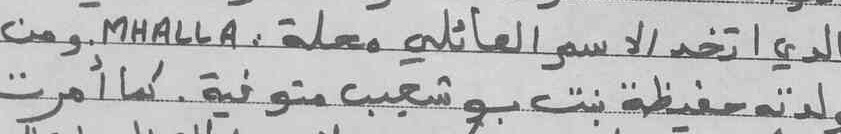 الدي اتخد الاسم العائلي محلة . MHALLA. ومن
ولدته حفيظة بنت بوشعيب متوفية . كما أمرت